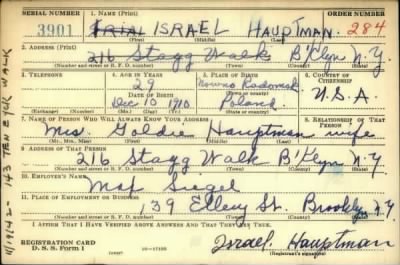 SERIAL NUMBER 1. NAME (Print) ORDER NUMBER
3901 ISRAEL HAUPTMAN 284
(First) (Middle) (Last)
2. ADDRESS (Print)
216 Stagg Walk B'klyn N.Y.
(Number and street or R. F. D. number) (Town) (County) (State)
3. TELEPHONE 4. AGE IN YEARS 5. PLACE OF BIRTH 6. COUNTRY OF CITIZENSHIP
29 Nowno Radomsk
DATE OF BIRTH (Town or county)
Dec 10 1910 Poland U.S.A.
(Exchange) (Number) (Mo.) (Day) (Yr.) (State or country)
7. NAME OF PERSON WHO WILL ALWAYS KNOW YOUR ADDRESS 8. RELATIONSHIP OF THAT PERSON
Mrs. Goldie Hauptman wife
(Mr., Mrs., Miss) (First) (Middle) (Last)
9. ADDRESS OF THAT PERSON
216 Stagg Walk B'klyn N.Y.
(Number and street or R. F. D. number) (Town) (County) (State)
10. EMPLOYER'S NAME
Max Siegel
11. PLACE OF EMPLOYMENT OR BUSINESS
139 Ellery St. Brooklyn N.Y.
(Number and street or R. F. D. number) (Town) (County) (State)
I AFFIRM THAT I HAVE VERIFIED ABOVE ANSWERS AND THAT THEY ARE TRUE.
REGISTRATION CARD
D. S. S. Form 1 Israel Hauptman
(Registrant's signature)
11/19/42 - 143 TEN EYCK WALK